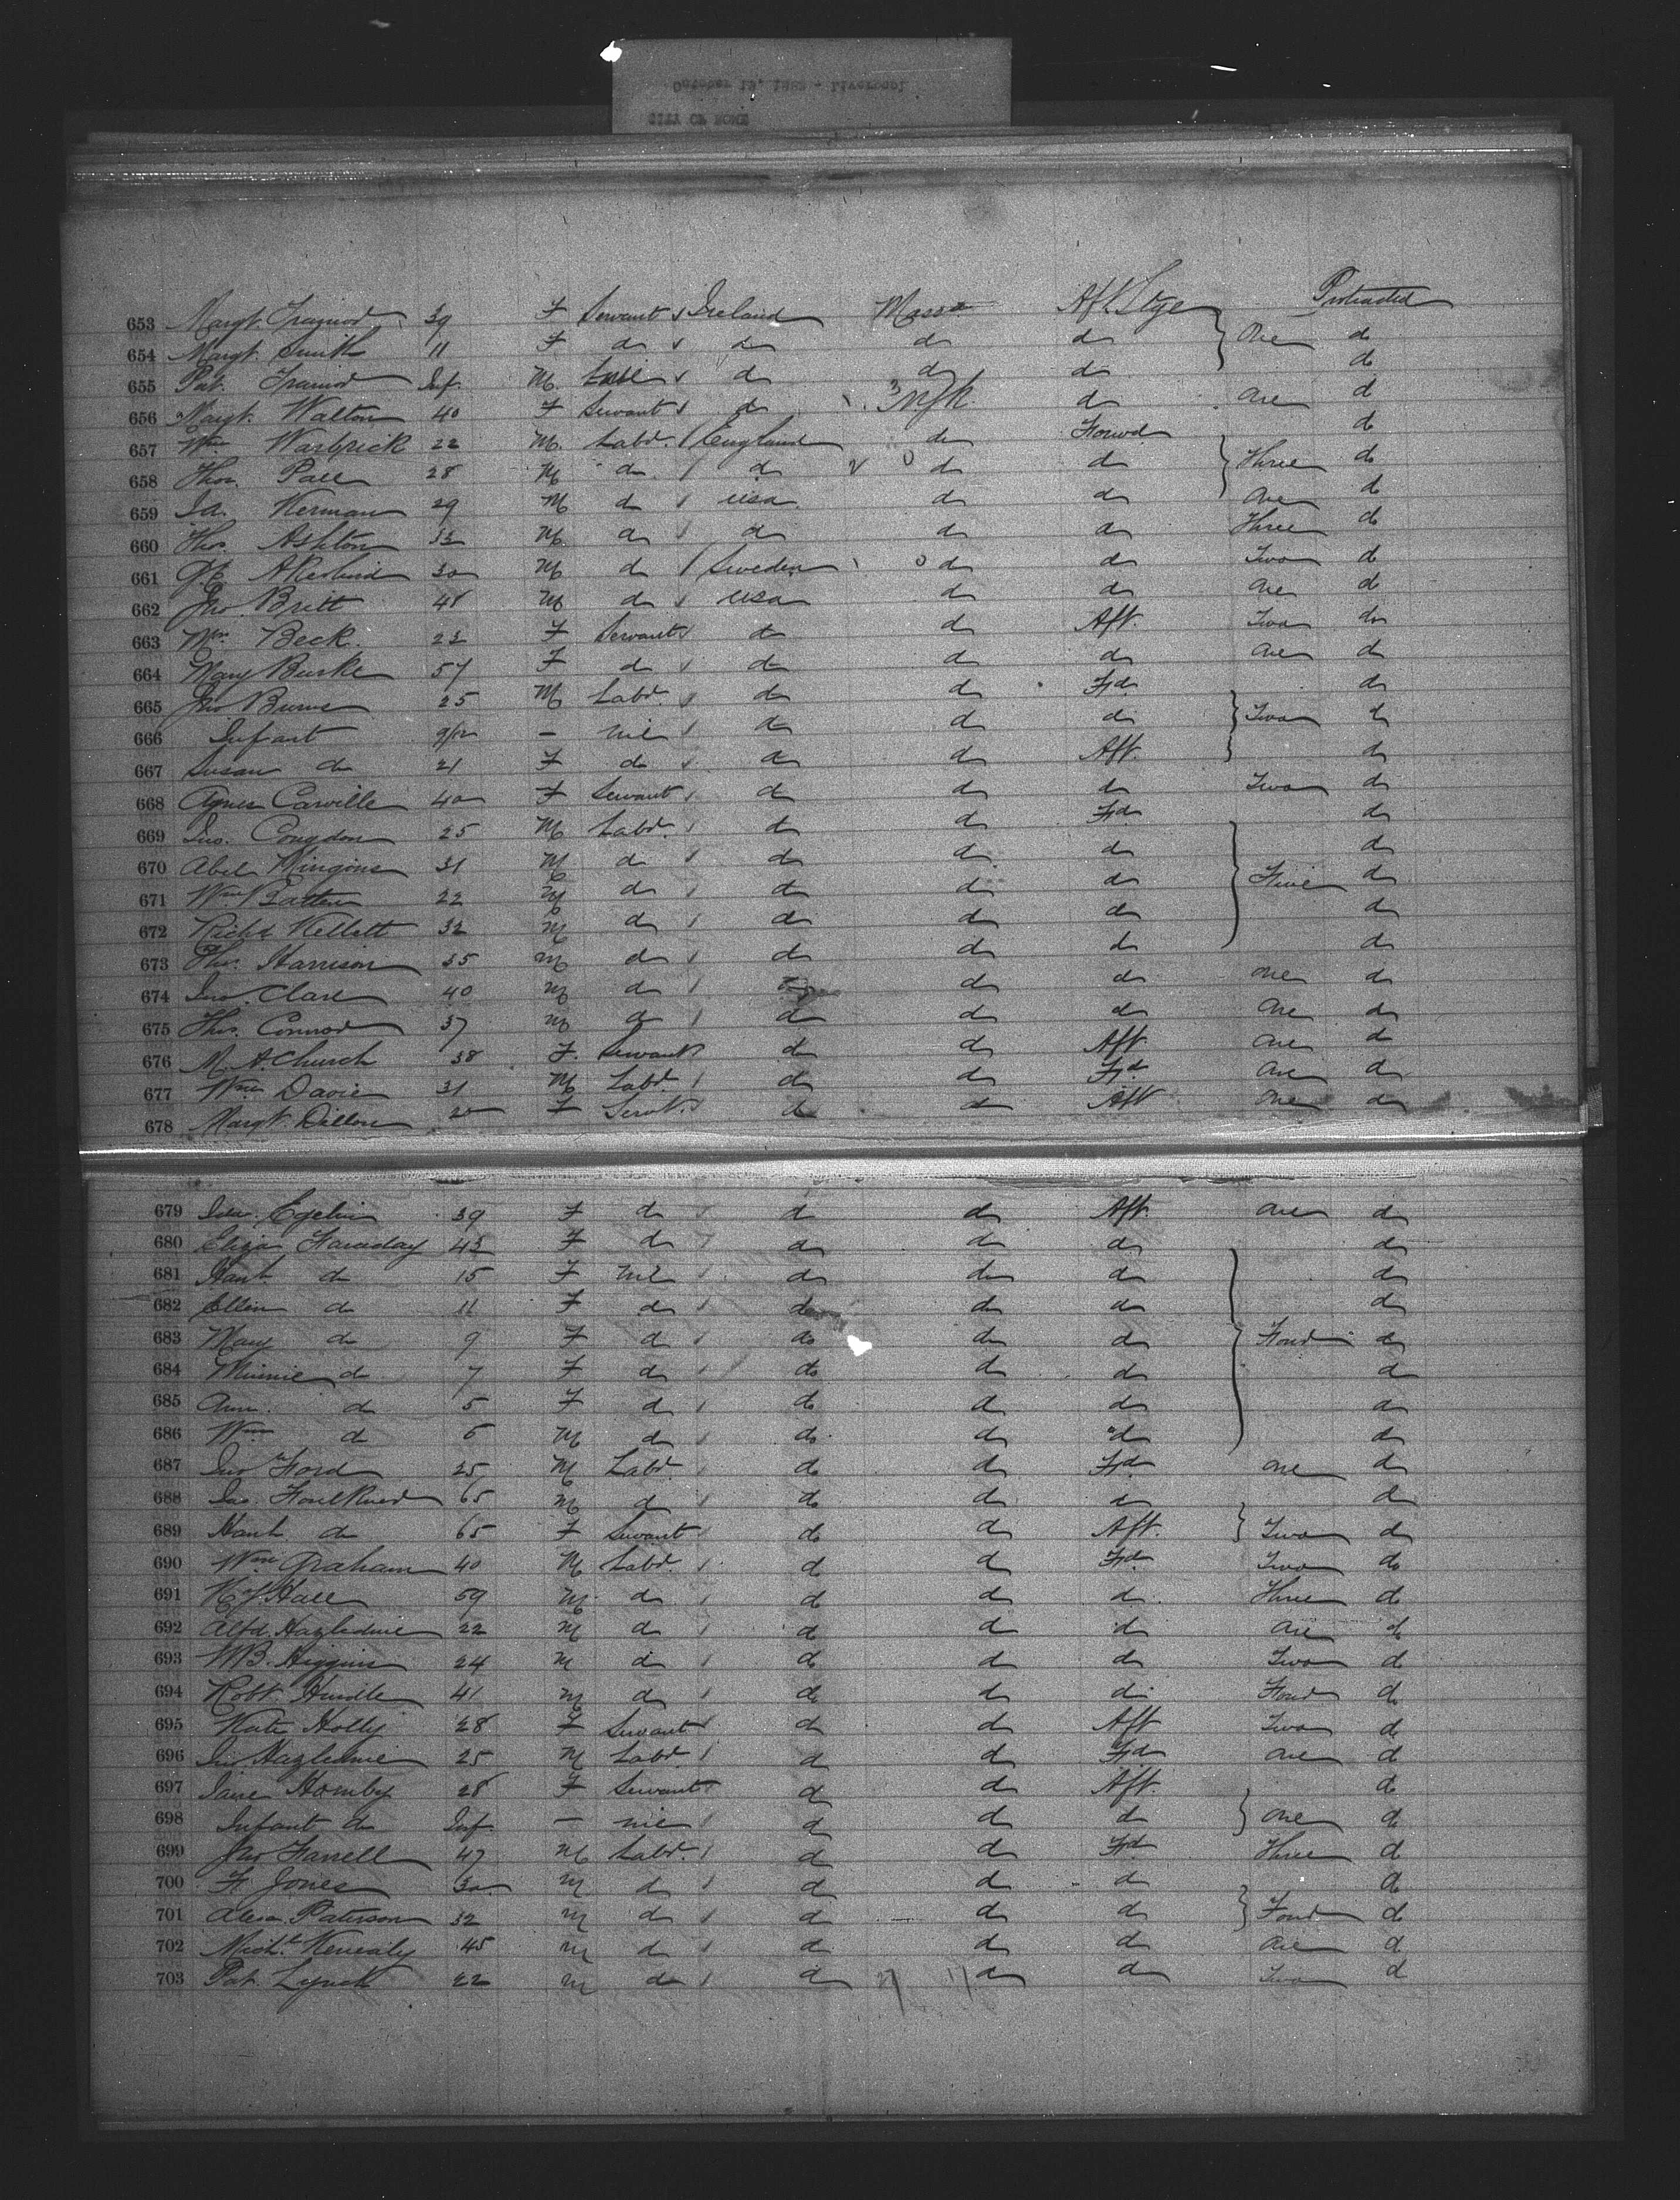 October 13, 188 - Liverpool
CITY OF ROME
Protracted
653 Margt. Traynor 39 F Servant Ireland Mass Aft. Stge
654 Margt. Smith 11 F do do do do One do
655 Pat. Inf. M. do do do do
656 Margt. Walton 40 F Servant do do One do
657 Wm 22 M. Labr. England do Forwd do
658 Thos. 28 M do do do do Three do
659 Kerman 29 M do USA do do One do
660 Thos. Ashton 33 M do do do do Three do
661 30 M do Sweden do do Two do
662 Jno Britt 48 M do USA do do One do
663 Mrs Beck 23 F Servant do do Aft. Two do
664 Mary Burke 57 F do do do do One do
665 Jno Burns 25 M Labr. do do Fd do
666 Infant 9/12 — nil do do do Two do
667 Susan do 21 F do do do Aft. do
668 Agnes Carville 40 F Servant do do do Two do
669 Jno. Congdon 25 M Labr. do do Fd do
670 Abel 31 M do do do do do
671 Wm 22 M do do do do Five do
672 Richd Kellett 32 M do do do do do
673 Thos. Harrison 35 M do do do do do
674 Jno. Clare 40 M do do do do One do
675 Thos. Connor 37 M do do do do One do
676 M. A. Church 38 F. Servant do do Aft. One do
677 Wm Davies 31 M Labr. do do Fd One do
678 Margt. Dillon 20 F Servt. do do Aft One do
679 39 F do do do Aft. One do
680 Eliza Faraday 43 F do do do do do
681 Hanh do 15 F nil do do do do
682 Ellen do 11 F do do do do do
683 Mary do 9 F do do do do Four do
684 Minnie do 7 F do do do do do
685 Ann. do 5 F do do do do do
686 Wm do 5 M do do do do do
687 Jno Ford 25 M Labr. do do Fd One do
688 Jas. Foulkner 65 M do do do do do
689 Hanh do 65 F Servant do do Aft. Two do
690 Wm Graham 40 M Labr. do do Fd Two do
691 Hall 59 M do do do do Three do
692 Alfd. Hazledine 22 M do do do do One do
693 W B. Higgins 24 M do do do do Two do
694 Robt. Hindle 41 M do do do do Four do
695 Kate Holly 28 F Servant do do Aft Two do
696 Jno Hazledine 25 M Labr. do do Fd One do
697 Jane Hornby 28 F Servant do do Aft. do
698 Infant do Inf. — nil do do do One do
699 Jno Farrell 47 M Labr. do do Fd Three do
700 F. Jones 30 M do do do do do
701 Alexr Paterson 32 M do do do do Four do
702 Michl. Keneally 45 M do do do do One do
703 Pat. Lynch 22 M do do do do Two do